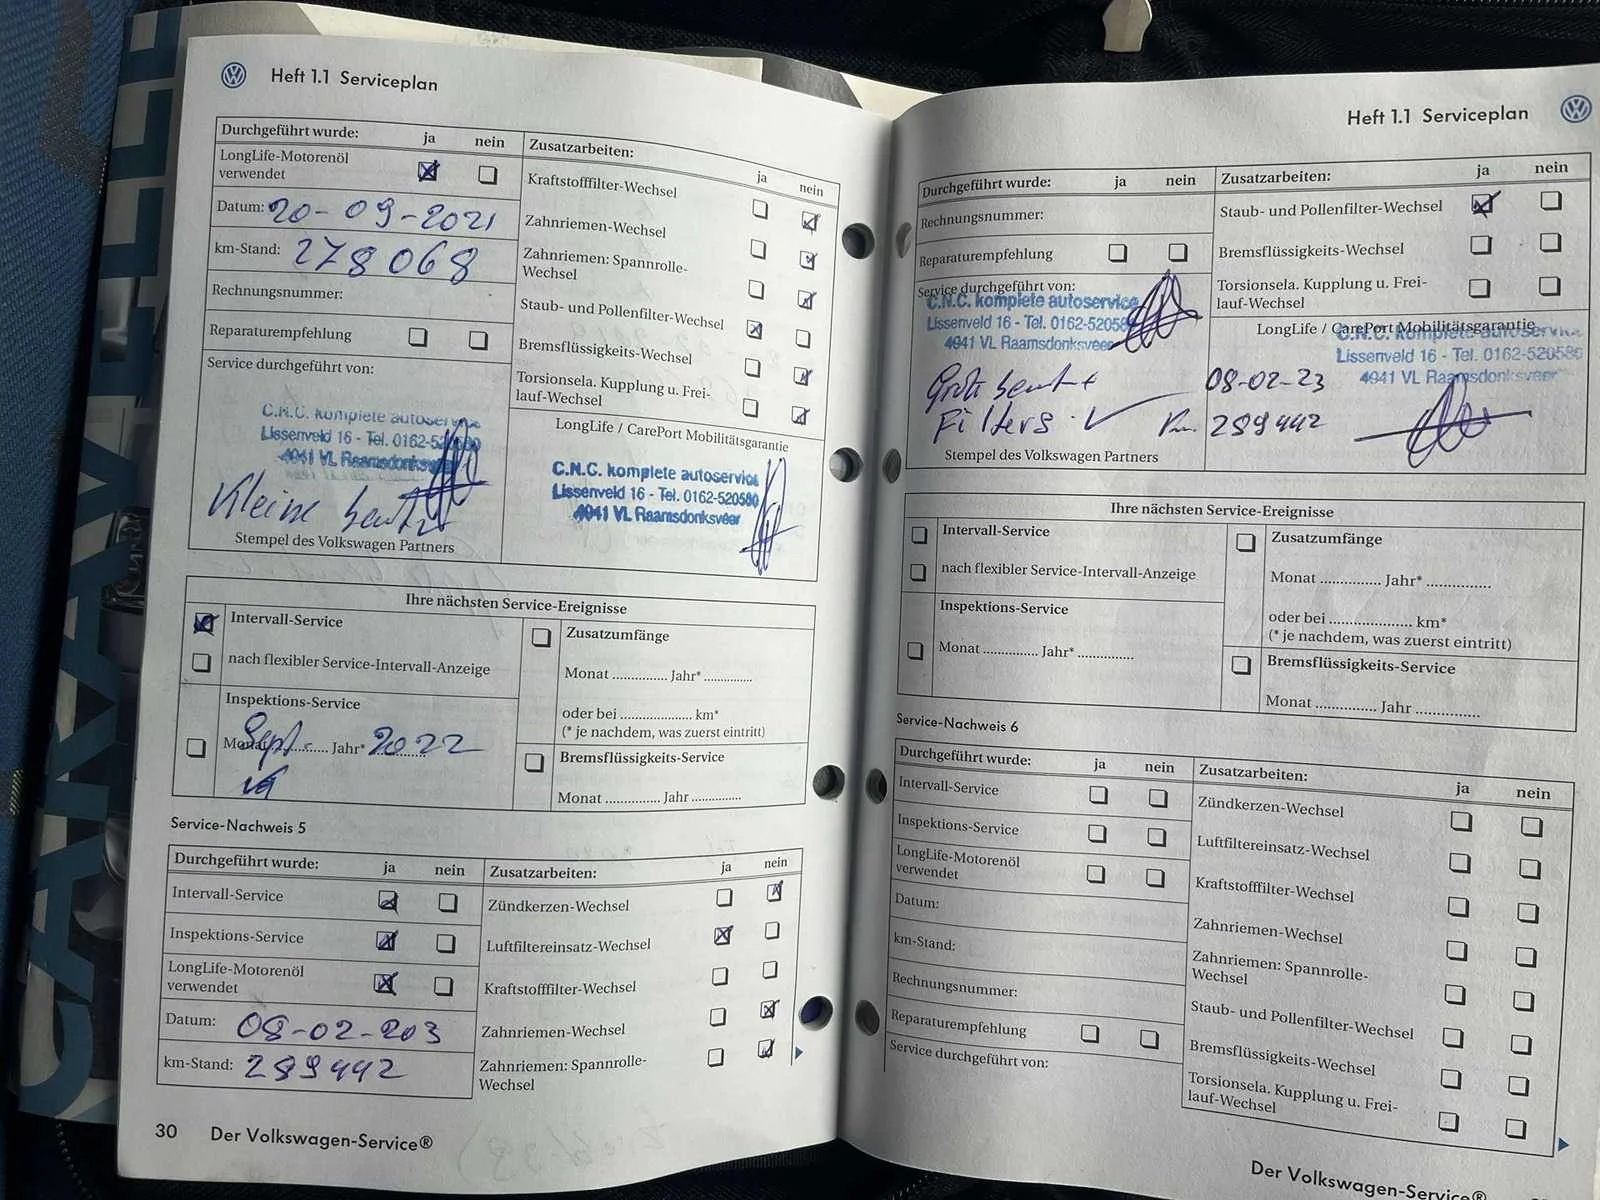 Heft 1.1 Serviceplan
Durchgeführt wurde: ja nein
LongLife-Motorenöl
verwendet
Datum: 20-09-2021
km-Stand: 278068
Rechnungsnummer:
Reparaturempfehlung
Service durchgeführt von:
C.N.C. komplete autoservice
Lissenveld 16 - Tel. 0162-520580
4941 VL Raamsdonksveer
Kleine beurt
Stempel des Volkswagen Partners
Zusatzarbeiten:
ja nein
Kraftstofffilter-Wechsel
Zahnriemen-Wechsel
Zahnriemen: Spannrolle-
Wechsel
Staub- und Pollenfilter-Wechsel
Bremsflüssigkeits-Wechsel
Torsionsela. Kupplung u. Frei-
lauf-Wechsel
LongLife / CarePort Mobilitätsgarantie
C.N.C. komplete autoservice
Lissenveld 16 - Tel. 0162-520580
4941 VL Raamsdonksveer
Ihre nächsten Service-Ereignisse
Intervall-Service
nach flexibler Service-Intervall-Anzeige
Inspektions-Service
Monat Sept. Jahr* 2022
Zusatzumfänge
Monat ............... Jahr* .............
oder bei .................... km*
(* je nachdem, was zuerst eintritt)
Bremsflüssigkeits-Service
Monat ............... Jahr .............
Service-Nachweis 5
Durchgeführt wurde: ja nein
Intervall-Service
Inspektions-Service
LongLife-Motorenöl
verwendet
Datum: 08-02-203
km-Stand: 289442
Zusatzarbeiten:
ja nein
Zündkerzen-Wechsel
Luftfiltereinsatz-Wechsel
Kraftstofffilter-Wechsel
Zahnriemen-Wechsel
Zahnriemen: Spannrolle-
Wechsel
30 Der Volkswagen-Service®
Heft 1.1 Serviceplan
Durchgeführt wurde: ja nein
Rechnungsnummer:
Reparaturempfehlung
Service durchgeführt von:
C.N.C. komplete autoservice
Lissenveld 16 - Tel. 0162-52058
4941 VL Raamsdonksveer
Grote beurt
Filters.
Stempel des Volkswagen Partners
Zusatzarbeiten:
ja nein
Staub- und Pollenfilter-Wechsel
Bremsflüssigkeits-Wechsel
Torsionsela. Kupplung u. Frei-
lauf-Wechsel
LongLife / CarePort Mobilitätsgarantie
C.N.C. komplete autoservice
Lissenveld 16 - Tel. 0162-520580
4941 VL Raamsdonksveer
08-02-23
289442
Ihre nächsten Service-Ereignisse
Intervall-Service
nach flexibler Service-Intervall-Anzeige
Inspektions-Service
Monat ............... Jahr* ...............
Zusatzumfänge
Monat ............... Jahr* ...............
oder bei ..................... km*
(* je nachdem, was zuerst eintritt)
Bremsflüssigkeits-Service
Monat ............... Jahr ...............
Service-Nachweis 6
Durchgeführt wurde: ja nein
Intervall-Service
Inspektions-Service
LongLife-Motorenöl
verwendet
Datum:
km-Stand:
Rechnungsnummer:
Reparaturempfehlung
Service durchgeführt von:
Zusatzarbeiten:
ja nein
Zündkerzen-Wechsel
Luftfiltereinsatz-Wechsel
Kraftstofffilter-Wechsel
Zahnriemen-Wechsel
Zahnriemen: Spannrolle-
Wechsel
Staub- und Pollenfilter-Wechsel
Bremsflüssigkeits-Wechsel
Torsionsela. Kupplung u. Frei-
lauf-Wechsel
Der Volkswagen-Service®